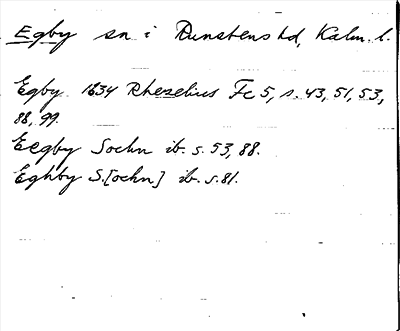 Egby sn i Runstens hd, Kalm. l.
Egby 1634 Rhezelius Fc 5, s. 43, 51, 53,
88, 99.
Eegby Sochn ib. s. 53, 88.
Eghby S.[ochn] ib. s. 81.